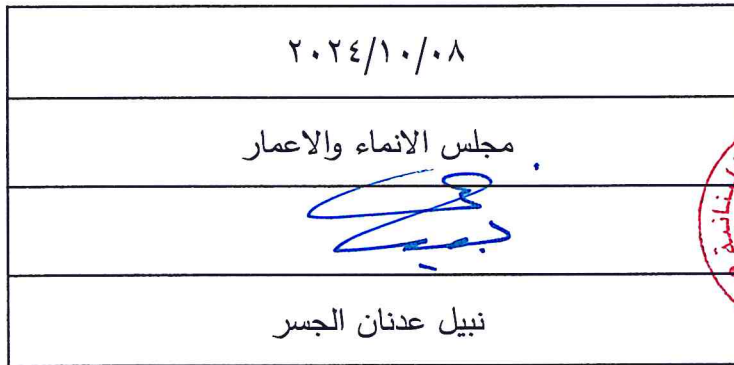 ٢٠٢٤/١٠/٠٨
مجلس الانماء والاعمار
نبيل عدنان الجسر